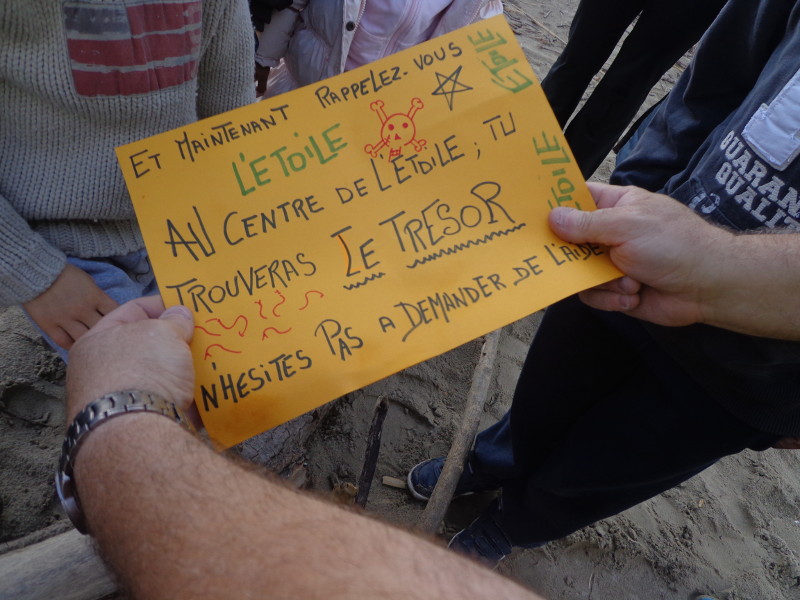 ET MAINTENANT RAPPELEZ-VOUS
L'ETOILE
ETOILE
AU CENTRE DE L'ETOILE ; TU
ETOILE
TROUVERAS LE TRESOR
N'HESITES PAS A DEMANDER DE L'AIDE
GUARAN
QUALI